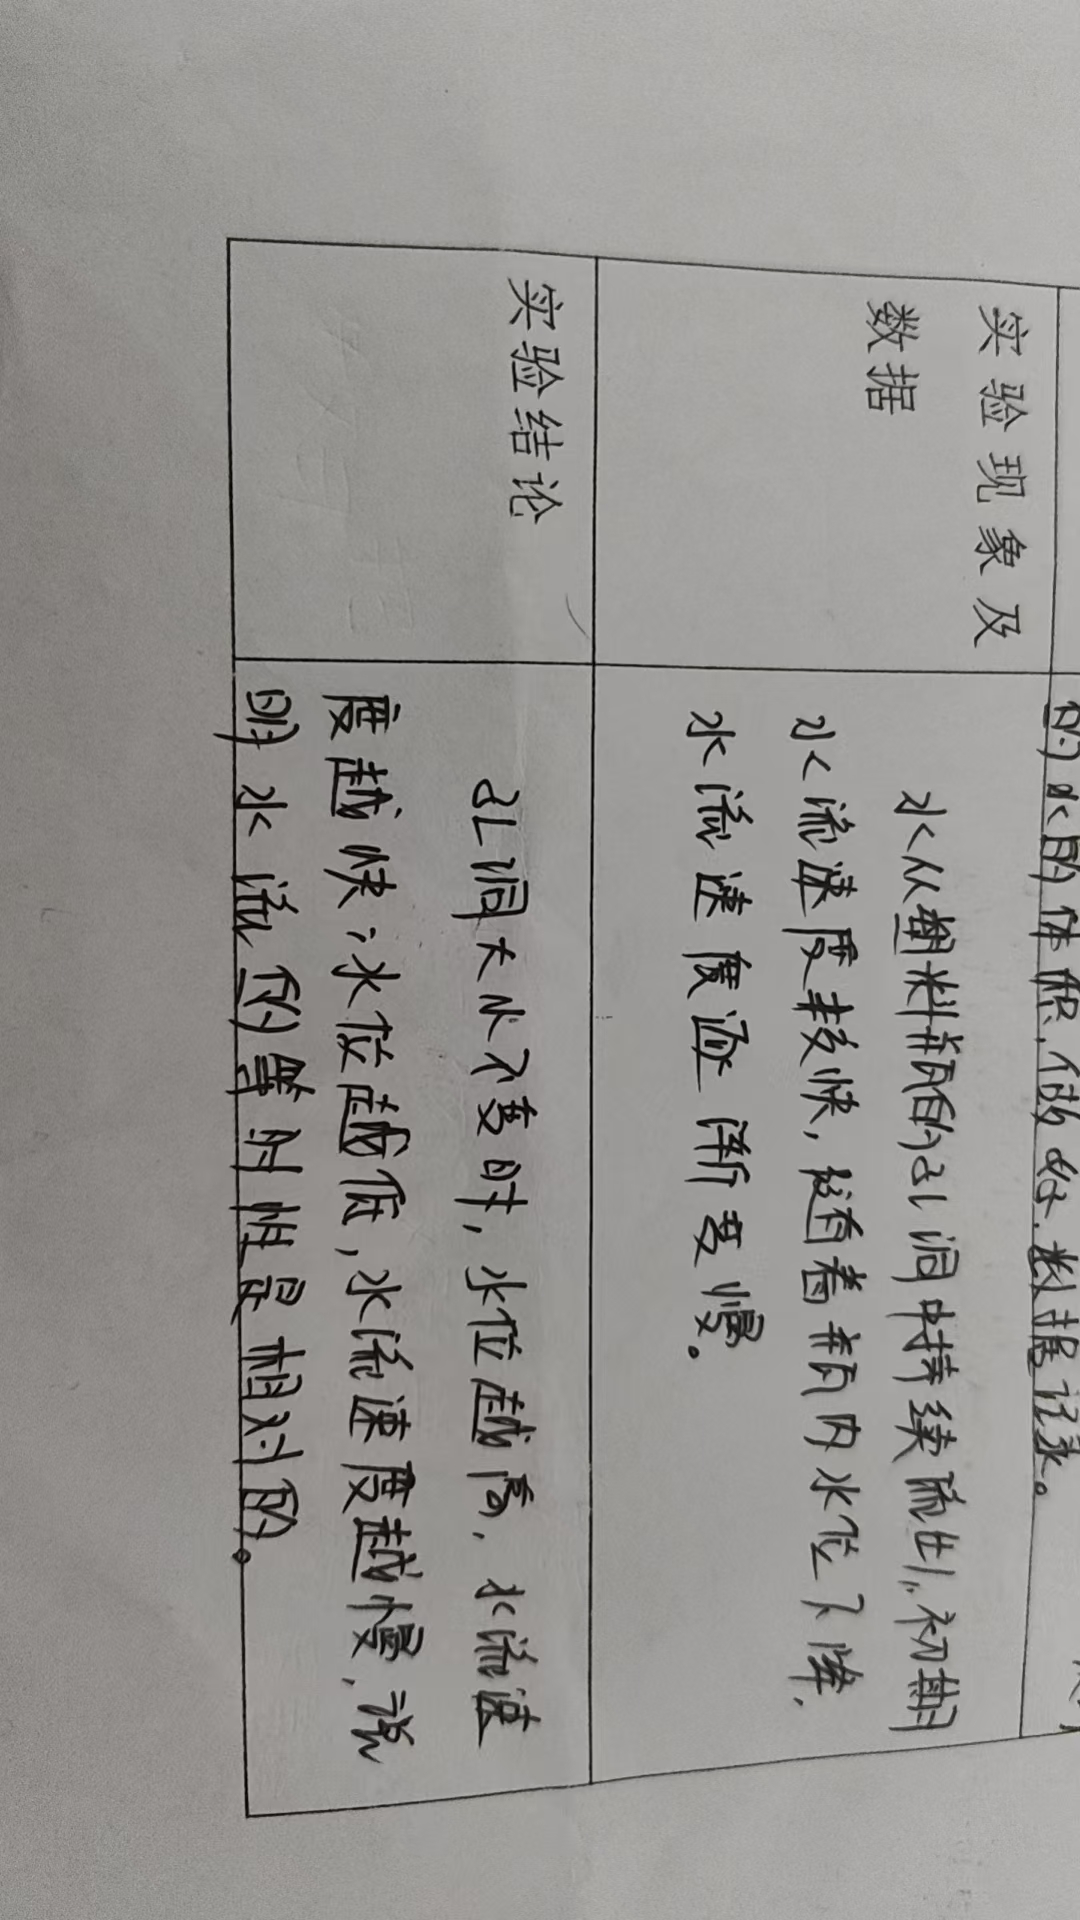 的水的体积,做好数据记录。
实验现象及
数据
水从塑料瓶的孔洞中持续流出,初期
水流速度较快,随着瓶内水位下降,
水流速度逐渐变慢。
实验结论
孔洞大小不变时,水位越高,水流速
度越快;水位越低,水流速度越慢,说
明水流的等时性是相对的。